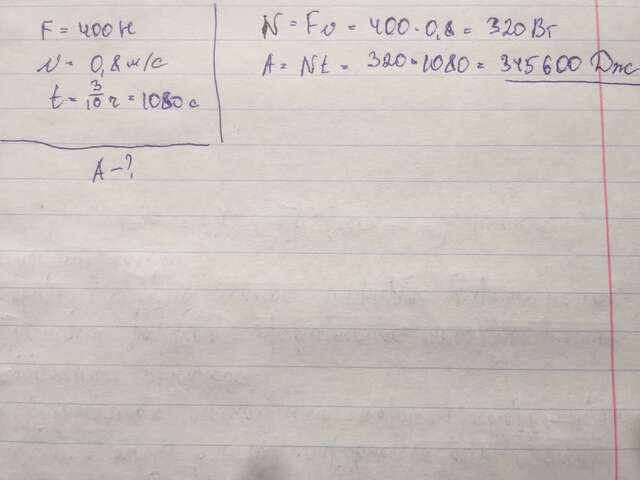 F = 400 Н
v = 0,8 м/с
t = 3/10 ч = 1080 с
A - ?
N = Fv = 400 · 0,8 = 320 Вт
A = Nt = 320 · 1080 = 345 600 Дж